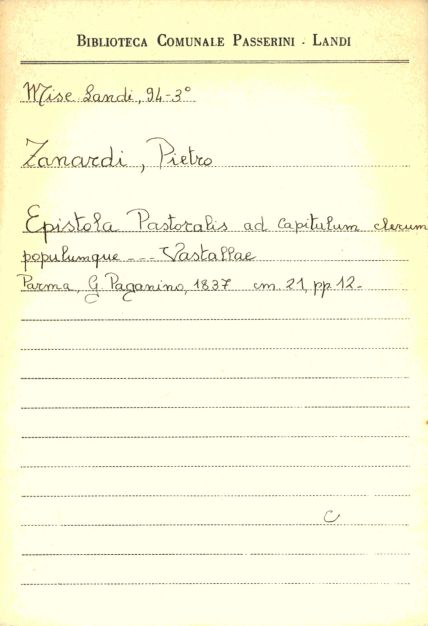 BIBLIOTECA COMUNALE PASSERINI - LANDI
Misc Landi, 94-3°
Zanardi, Pietro
Epistola Pastoralis ad Capitulum clerum
populumque --- Vastallae
Parma, G. Paganino, 1837 cm. 21, pp. 12-
C